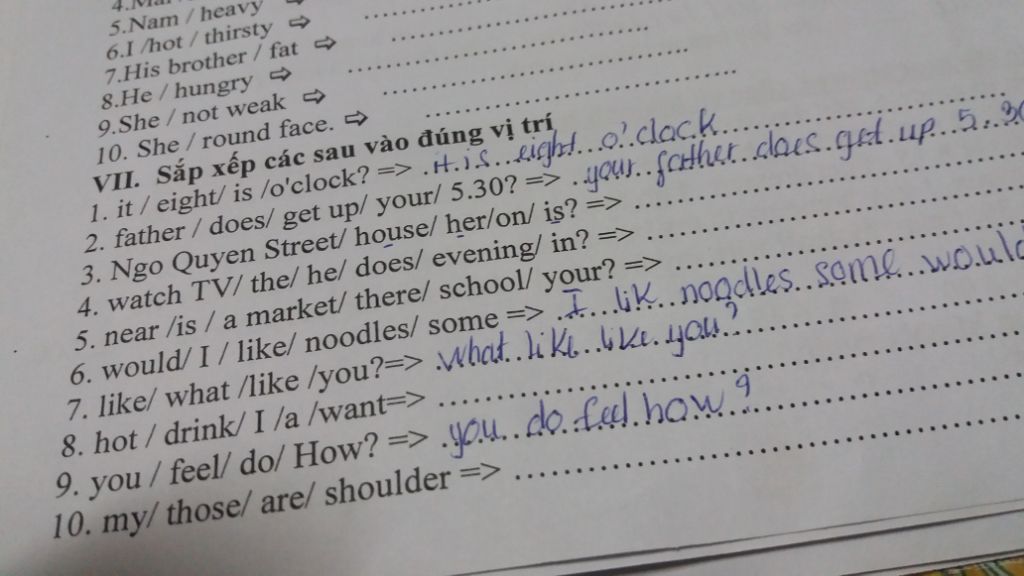 5.Nam / heavy ⇨
6.I /hot / thirsty ⇨ ..............................
7.His brother / fat ⇨ ..............................
8.He / hungry ⇨ ..............................
9.She / not weak ⇨ ..............................
10. She / round face. ⇨ ..............................
VII. Sắp xếp các sau vào đúng vị trí
1. it / eight/ is /o'clock? => It is eight o'clock
2. father / does/ get up/ your/ 5.30? => your father does get up 5.30
3. Ngo Quyen Street/ house/ her/on/ is? => ..............................
4. watch TV/ the/ he/ does/ evening/ in? => ..............................
5. near /is / a market/ there/ school/ your? => ..............................
6. would/ I / like/ noodles/ some => I lik noodles some would
7. like/ what /like /you?=> What like like you?
8. hot / drink/ I /a /want=> ..............................
9. you / feel/ do/ How? => you do feel how?
10. my/ those/ are/ shoulder => ..............................